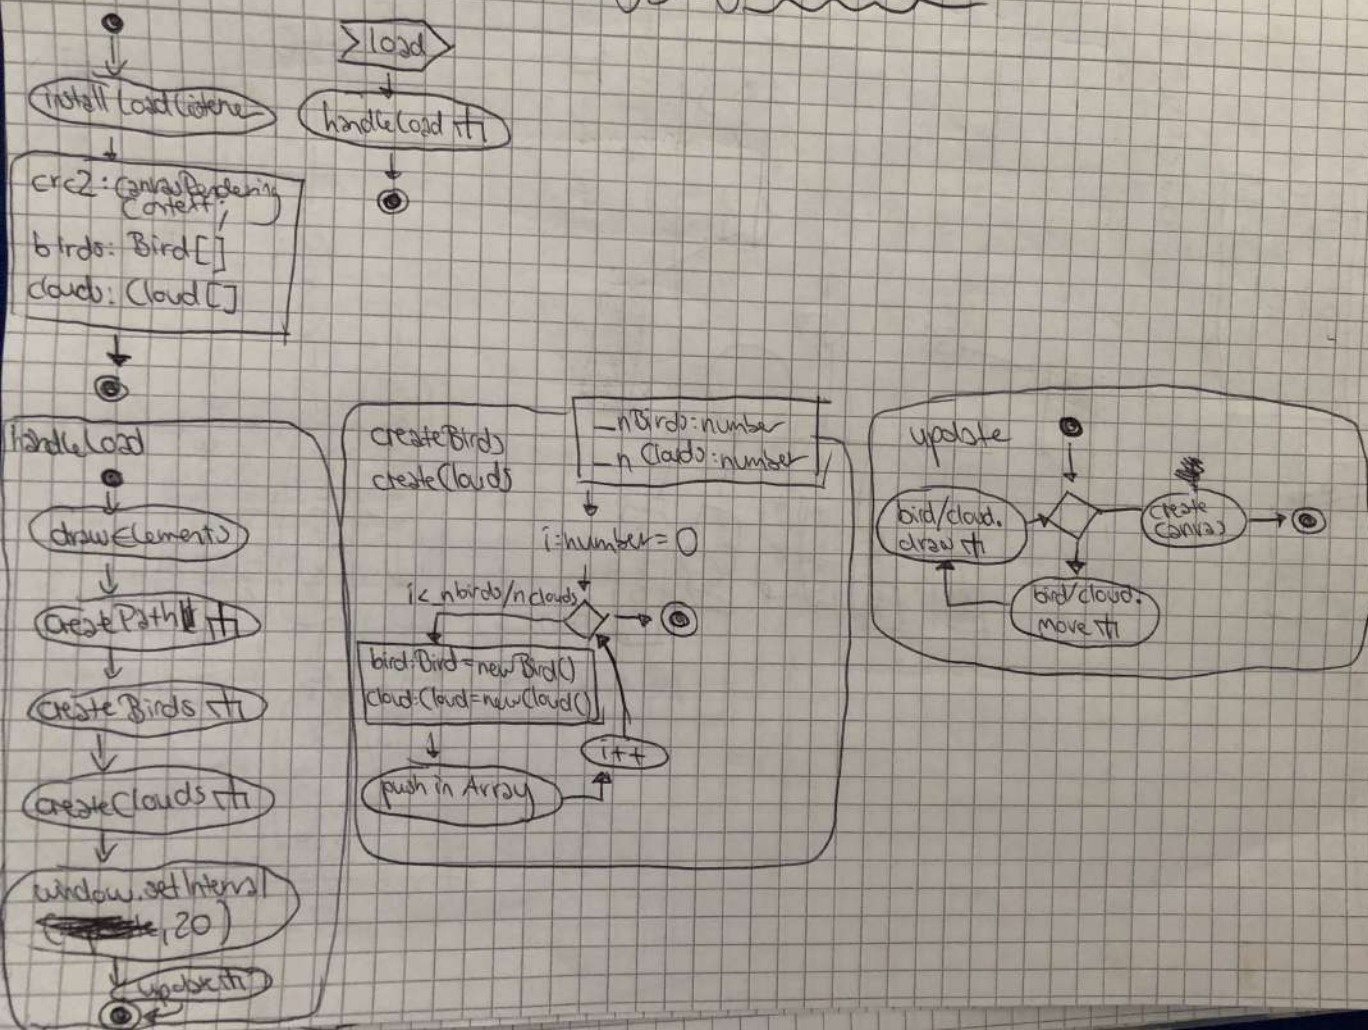 install Load Listener
crc2: CanvasRendering
Context;
birds: Bird[]
clouds: Cloud[]
load
handleLoad
handleLoad
drawElements
createPath
createBirds
createClouds
window.setInterval
, 20)
update
createBirds
createClouds
_nBirds: number
_nClouds: number
i: number = 0
i< _nbirds/nclouds
bird: Bird = new Bird()
cloud: Cloud = new Cloud()
push in Array
i++
update
bird/cloud.
draw
create
canvas
bird/cloud.
move